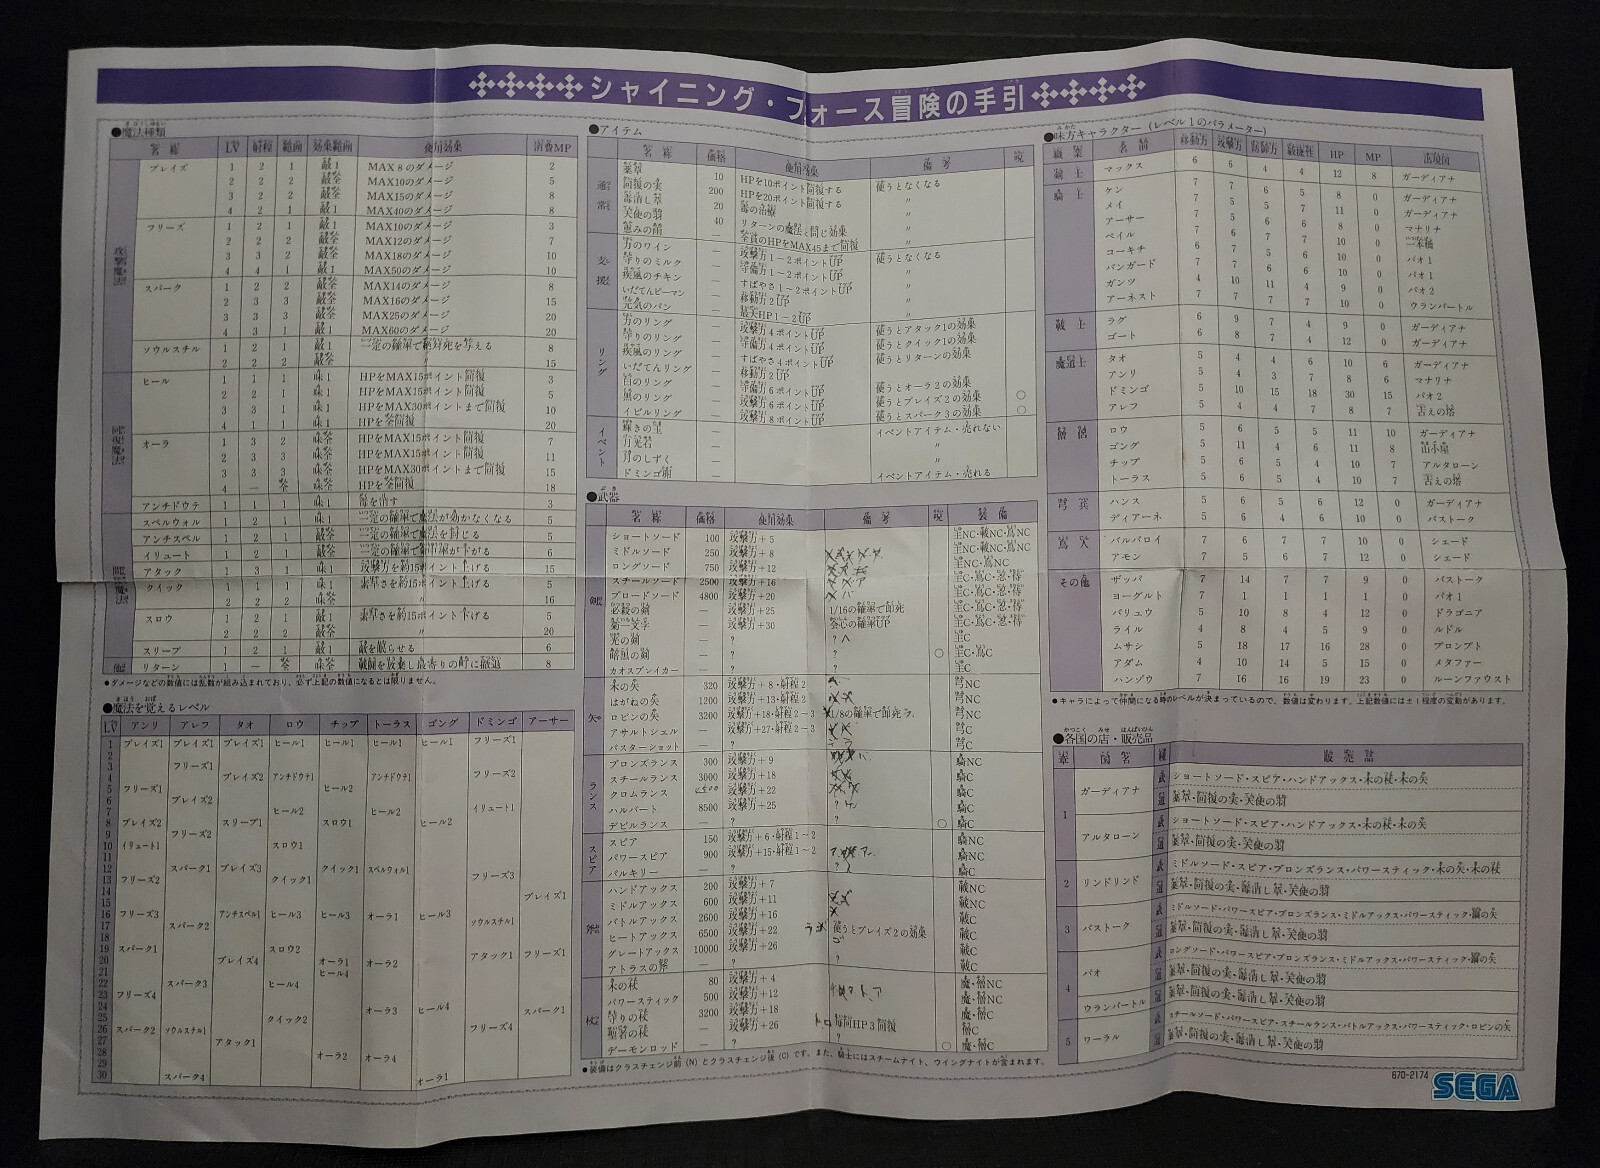 シャイニング・フォース冒険の手引
●魔法種類
名称 LV 射程 範囲 効果範囲 使用効果 消費MP
攻撃魔法
ブレイズ 1 2 1 敵1 MAX8のダメージ 2
2 2 2 敵全 MAX10のダメージ 5
3 2 2 敵全 MAX15のダメージ 8
4 2 1 敵1 MAX40のダメージ 8
フリーズ 1 2 1 敵1 MAX10のダメージ 3
2 2 2 敵全 MAX12のダメージ 7
3 3 2 敵全 MAX18のダメージ 10
4 4 1 敵1 MAX50のダメージ 10
スパーク 1 2 2 敵全 MAX14のダメージ 8
2 3 3 敵全 MAX16のダメージ 15
3 3 3 敵全 MAX25のダメージ 20
4 3 1 敵1 MAX60のダメージ 20
ソウルスチル 1 2 1 敵1 一定の確率で絶対死を与える 8
2 2 2 敵全 〃 15
回復魔法
ヒール 1 1 1 味1 HPをMAX15ポイント回復 3
2 2 1 味1 HPをMAX15ポイント回復 5
3 3 1 味1 HPをMAX30ポイントまで回復 10
4 1 1 味1 HPを全回復 20
オーラ 1 3 2 味全 HPをMAX15ポイント回復 7
2 3 3 味全 HPをMAX15ポイント回復 11
3 3 3 味全 HPをMAX30ポイントまで回復 15
4 — 全 味全 HPを全回復 18
アンチドウテ 1 1 1 味1 毒を消す 3
スペルウォル 1 2 1 味1 一定の確率で魔法が効かなくなる 5
アンチスペル 1 2 1 敵全 一定の確率で魔法を封じる 5
イリュート 1 2 1 敵全 一定の確率で命中率が下がる 6
アタック 1 3 1 味1 攻撃力を約15ポイント上げる 15
クイック 1 1 1 味1 素早さを約15ポイント上げる 5
2 2 2 味全 〃 16
スロウ 1 2 1 敵1 素早さを約15ポイント下げる 5
2 2 2 敵全 〃 20
スリープ 1 2 1 敵1 敵を眠らせる 6
他 リターン 1 — 全 味全 戦闘を放棄し最寄りの町に撤退 8
●ダメージなどの数値には乱数が組み込まれており、必ず上記の数値になるとは限りません。
●魔法を覚えるレベル
LV アンリ アレフ タオ ロウ チップ トーラス ゴング ドミンゴ アーサー
1 ブレイズ1 ブレイズ1 ブレイズ1 ヒール1 ヒール1 ヒール1 ヒール1 フリーズ1
2
3 フリーズ1
4 ブレイズ2 アンチドウテ1 アンチドウテ1 フリーズ2
5 フリーズ1 ヒール2
6 ブレイズ2
7 ヒール2 ヒール2 イリュート1
8 ブレイズ2 スリープ1 スロウ1 ヒール2
9 フリーズ2
10 イリュート1 スロウ1
11
12 スパーク1 ブレイズ3 クイック1 スペルウォル1
13 フリーズ2 クイック1 フリーズ3
14
15 ブレイズ1
16 フリーズ3 アンチスペル1 ヒール3 ヒール3 オーラ1 ヒール3
17 スパーク2 ソウルスチル1
18
19 スパーク1 スロウ2 アタック1 フリーズ1
20 ブレイズ4 オーラ1 オーラ2
21 ヒール4
22 スパーク3 ヒール4
23 フリーズ4
24 オーラ3 ヒール4 スパーク1
25 クイック2
26 スパーク2 ソウルスチル1 フリーズ4
27 アタック1
28 オーラ2 オーラ4
29
30 スパーク4 オーラ1
●アイテム
名称 価格 使用効果 備考 呪
通常
薬草 10 HPを10ポイント回復する 使うとなくなる
回復の実 200 HPを20ポイント回復する 〃
毒消し草 20 毒の治療 〃
天使の羽 40 リターンの魔法と同じ効果 〃
恵みの雨 — 全員のHPをMAX45まで回復 〃
支援
力のワイン — 攻撃力1~2ポイントUP 使うとなくなる
守りのミルク — 守備力1~2ポイントUP 〃
疾風のチキン — すばやさ1~2ポイントUP 〃
いだてんピーマン — 移動力2UP 〃
元気のパン — 最大HP1~2UP 〃
リング
力のリング — 攻撃力4ポイントUP 使うとアタック1の効果
守りのリング — 守備力4ポイントUP 使うとクイック1の効果
疾風のリング — すばやさ4ポイントUP 使うとリターンの効果
いだてんリング — 移動力2UP
白のリング — 守備力6ポイントUP 使うとオーラ2の効果
黒のリング — 攻撃力6ポイントUP 使うとブレイズ2の効果 ○
イビルリング — 攻撃力8ポイントUP 使うとスパーク3の効果 ○
イベント
輝きの玉 — イベントアイテム・売れない
月光石 — 〃
月のしずく —
ドミンゴ卵 — イベントアイテム・売れる
●武器
名称 価格 使用効果 備考 呪 装備
剣
ショートソード 100 攻撃力+5 主NC・戦NC・鳥NC
ミドルソード 250 攻撃力+8 主NC・戦NC・鳥NC
ロングソード 750 攻撃力+12 主NC・鳥NC
スチールソード 2500 攻撃力+16 主C・鳥C・忍・侍
ブロードソード 4800 攻撃力+20 主C・鳥C・忍・侍
必殺の剣 — 攻撃力+25 1/16の確率で即死 主C・鳥C・忍・侍
菊一文字 — 攻撃力+30 会心の確率UP 主C・鳥C・忍・侍
光の剣 — ? ? 主C
暗黒の剣 — ? ? ○ 主C・鳥C
カオスブレイカー — ? ? 主C
矢
木の矢 320 攻撃力+8・射程2 弓NC
はがねの矢 1200 攻撃力+13・射程2 弓NC
ロビンの矢 3200 攻撃力+18・射程2~3 1/8の確率で即死 弓NC
アサルトシェル — 攻撃力+27・射程2~3 弓C
バスターショット — ? ? 弓C
ランス
ブロンズランス 300 攻撃力+9 騎NC
スチールランス 3000 攻撃力+18 騎C
クロムランス 4500 攻撃力+22 騎C
ハルバート 8500 攻撃力+25 ? 騎C
デビルランス — ? ? ○ 騎C
スピア
スピア 150 攻撃力+6・射程1~2 騎NC
パワースピア 900 攻撃力+15・射程1~2 騎NC
バルキリー — ? ? 騎C
斧
ハンドアックス 200 攻撃力+7 戦NC
ミドルアックス 600 攻撃力+11 戦NC
バトルアックス 2600 攻撃力+16 戦C
ヒートアックス 6500 攻撃力+22 使うとブレイズ2の効果 戦C
グレートアックス 10000 攻撃力+26 戦C
アトラスの斧 — ? ? 戦C
杖
木の杖 80 攻撃力+4 魔・僧NC
パワースティック 500 攻撃力+12 魔・僧NC
守りの杖 3200 攻撃力+18 魔・僧C
聖者の杖 — 攻撃力+26 毎回HP3回復 僧C
デーモンロッド — ? ? ○ 魔・僧C
●装備はクラスチェンジ前(N)とクラスチェンジ後(C)です。また、騎士にはスチームナイト、ウイングナイトが含まれます。
●味方キャラクター(レベル1のパラメーター)
職業 名前 移動力 攻撃力 防御力 敏捷性 HP MP 出現国
剣士 マックス 6 6 4 4 12 8 ガーディアナ
騎士 ケン 7 7 6 5 8 0 ガーディアナ
メイ 7 5 5 7 11 0 ガーディアナ
アーサー 7 5 6 6 8 0 マナリナ
ペイル 7 6 7 7 10 0 一本橋
コーキチ 6 7 5 6 10 0 パオ1
バンガード 7 7 6 6 10 0 パオ1
ガンツ 4 10 11 4 9 0 パオ2
アーネスト 7 7 7 7 10 0 ウランバートル
戦士 ラグ 6 9 7 4 9 0 ガーディアナ
ゴート 6 8 7 4 12 0 ガーディアナ
魔道士 タオ 5 4 4 6 10 6 ガーディアナ
アンリ 5 4 3 7 8 6 マナリナ
ドミンゴ 5 10 15 18 30 15 パオ2
アレフ 5 4 4 7 8 7 古えの塔
僧侶 ロウ 5 6 5 5 11 10 ガーディアナ
ゴング 5 11 4 6 11 8 山小屋
チップ 5 6 5 4 10 7 アルタローン
トーラス 5 6 5 4 10 7 古えの塔
弓兵 ハンス 5 6 5 6 12 0 ガーディアナ
ディアーネ 5 6 4 6 10 0 バストーク
鳥人 バルバロイ 7 6 7 7 10 0 シェード
アモン 7 5 6 7 12 0 シェード
その他 ザッパ 7 14 7 7 9 0 バストーク
ヨーグルト 7 1 1 1 1 0 パオ1
バリュウ 5 10 8 4 12 0 ドラゴニア
ライル 4 8 4 5 9 0 ルドル
ムサシ 5 18 17 16 28 0 プロンプト
アダム 4 10 14 5 15 0 メタファー
ハンゾウ 7 16 16 19 23 0 ルーンファウスト
●キャラによって仲間になる時のレベルが決まっているので、数値は変わります。上記数値には±1程度の変動があります。
●各国の店・販売品
章 国名 種 販売品
1 ガーディアナ 武 ショートソード・スピア・ハンドアックス・木の杖・木の矢
道 薬草・回復の実・天使の羽
アルタローン 武 ショートソード・スピア・ハンドアックス・木の杖・木の矢
道 薬草・回復の実・天使の羽
2 リンドリンド 武 ミドルソード・スピア・ブロンズランス・パワースティック・木の矢・木の杖
道 薬草・回復の実・毒消し草・天使の羽
3 バストーク 武 ミドルソード・パワースピア・ブロンズランス・ミドルアックス・パワースティック・鋼の矢
道 薬草・回復の実・毒消し草・天使の羽
4 パオ 武 ロングソード・パワースピア・ブロンズランス・ミドルアックス・パワースティック・鋼の矢
道 薬草・回復の実・毒消し草・天使の羽
ウランバートル 道 薬草・回復の実・毒消し草・天使の羽
5 ワーラル 武 スチールソード・パワースピア・スチールランス・バトルアックス・パワースティック・ロビンの矢
道 薬草・回復の実・毒消し草・天使の羽
670-2174 SEGA